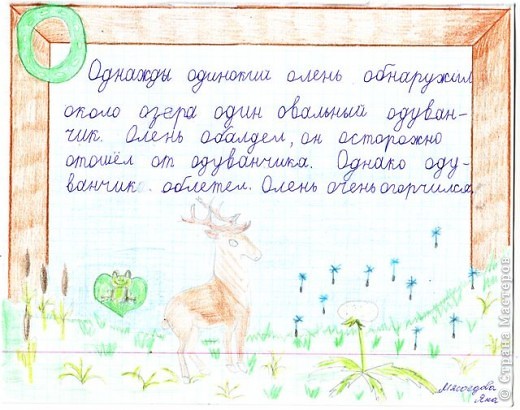 О
Однажды одинокий олень обнаружил
около озера один овальный одуван-
чик. Олень обалдел, он осторожно
отошёл от одуванчика. Однако оду-
ванчик облетел. Олень очень огорчился
Яна
© Страна Мастеров